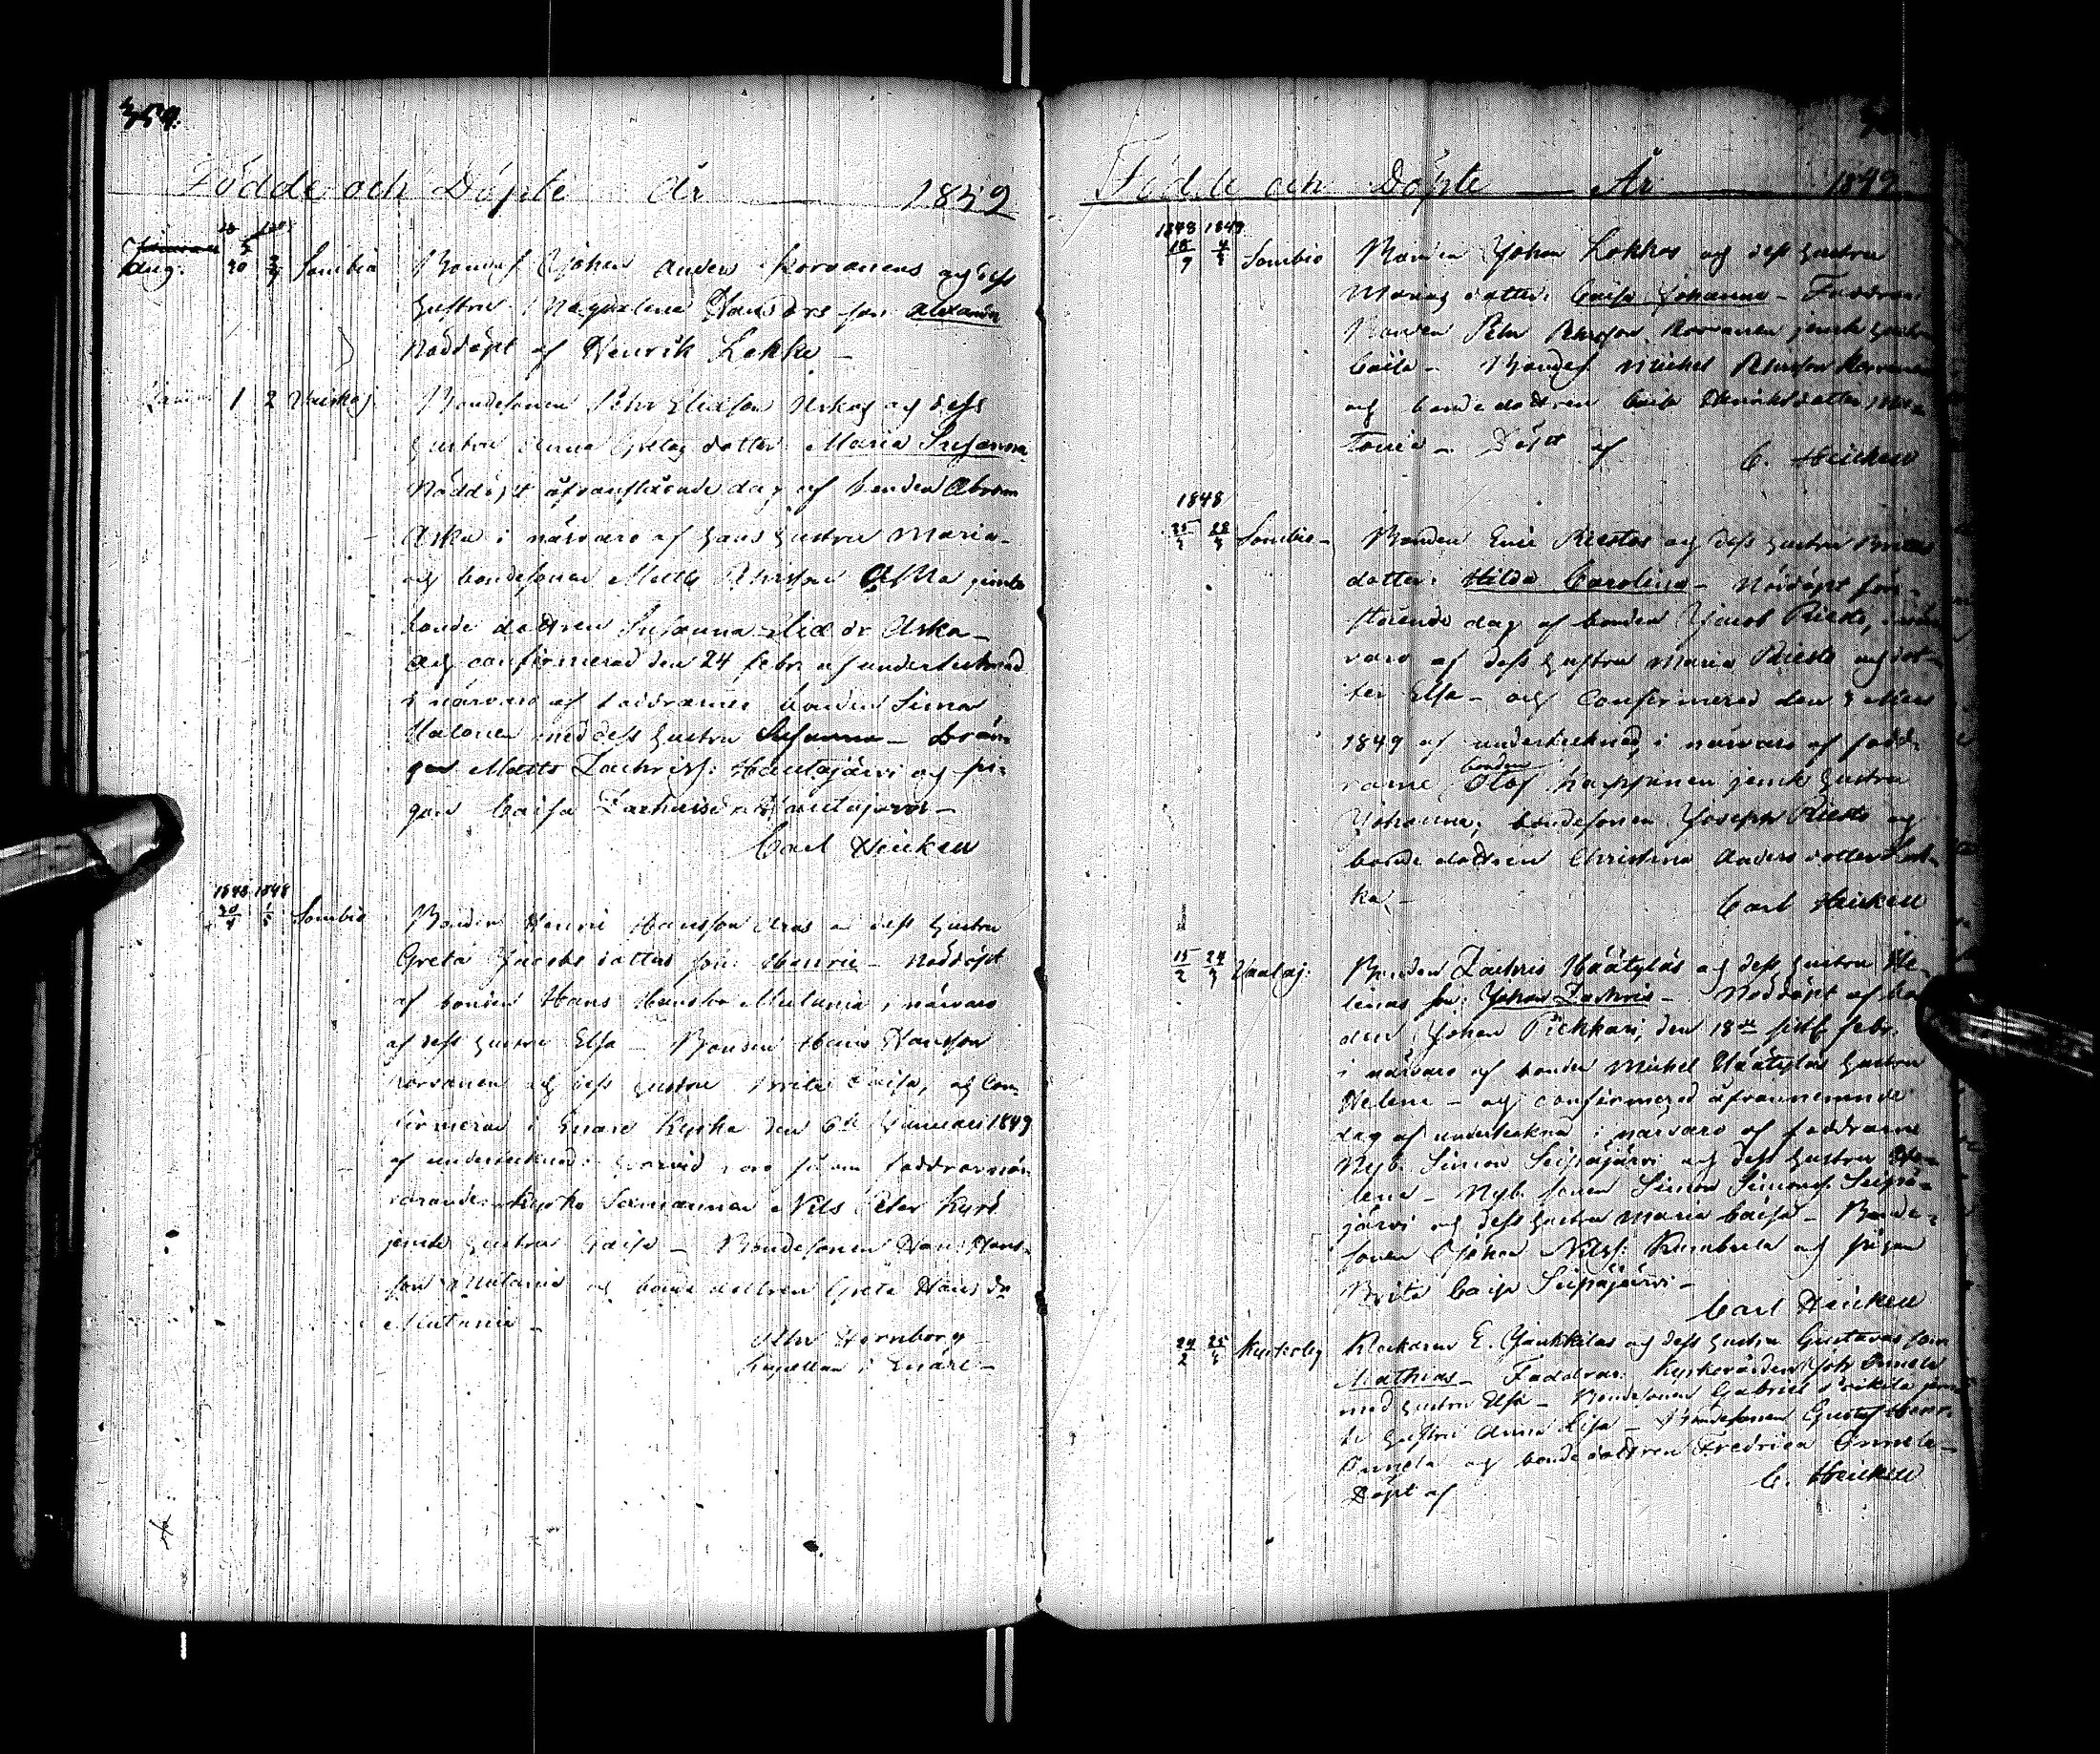 359.
Födde och Döpte År 1849
Aug. 30 Sombio Bondes. Johan Anders Korvanens och dess
hustru Magdalena Hans drs son Alexander
Nöddöpt af Henrik Lokka –
1 2 Bondesonen Pehr Eliasson Askas och dess
hustru Anna Gretas dotter Maria Susanna
Nöddöpt åfvanstående dag af bonden Abram
Aska i närvaro af hans hustru Maria –
och bondesonen Matts Aska jemte
bonde dottren Susanna Elias dr Aska –
och confirmerad den 24 Febr. af undertecknad
i närvaro af faddrarne bonden Simon
Halonen med dess hustru Susanna – Drän
gen Matts Zachriss: Hautajärvi og pi-
gan Caisa Zachrisdr Hautajärvi –
Carl Heickell
1848 1848
30/4 1/5 Sombio Bonden Henric Hansson Aras och dess hustru
Greta Jacobs dotters son: Henric – Nöddöpt
af bonden Hans Hansson Mutania i närvaro
af dess hustru Elsa – Bonden Hans Hansson
Korvanen och dess hustru Brita Caisa, och Con-
firmerad i Enare Kyrka den 6te Januari 1849
af undertecknad hvarvid voro såsom faddrar när-
varande: Nils Peter Kyrö
jemte hustru Caisa – Bondesonen Hans Hans-
son Mutania och bonde dottren Greta Hans dr
Mutania –
Hornborg
Kapellan i Enare –
Födde och Döpte År 1849
1848 1849
18/9 Sombio Bonden Johan Lokkas och dess hustru
Marias dotter: Caisa Johanna – Faddrar:
Bonden Pehr Pehrsson Korvanen jemte hustru
Caisa – Bondes. Michel Pehrsson Korvanen
och bonde dottren Caisa Henriksdotter Mu-
tania – Döpt af C. Heickell
1848
Sombio – Bonden Eric Riestos och dess hustru Britas
dotter: Hilda Carolina – Nöddöpt före-
stående dag af bonden Jacob Riesto, i när
varo af dess hustru Maria Riesto och dot-
ter Elsa – och confirmerad den 3 Mars
1849 af undertecknad, i närvaro af fadd-
rarne, bonden Olof jemte hustru
Johanna, bondesonen Joseph Riesto og
bonde dottren Christina Anders dotter Lok-
ka –
Carl Heickell
15/2 24/3 Vaalaj: Bonden Zachris Häätyläs och dess hustru He-
lenas son: Johan Zachris – Nöddöpt af bon
den Johan Pickkari, den 18de sistl. Febr.
i närvaro af bonden Michel Häätyläs hustru
Helena – och confirmerad åfvannemnde
dag af undertecknad i närvaro af faddrarne
Nyb. Simon Seipäjärvi och dess hustru He-
lena – Nyb. sonen Simon Simons. Seipä-
järvi och dess hustru Maria Caisa – Bonde-
sonen Johan Nilss: Kumbula och pigan
Brita Caisa Seipäjärvi –
Carl Heickell
24/2 Kyrkoby Klockaren E. Jankkilas och dess hustru Gustavas son
Mathias – Faddrar: Kyrkovärden Joh. Onnela
med hustru Elsa – Bondesonen Gabriel jem-
te hustru Anna Lisa – Bondesonen Gustaf Henr.
Onnela och bonde dottren Fredrica Onnela –
Döpt af C. Heickell